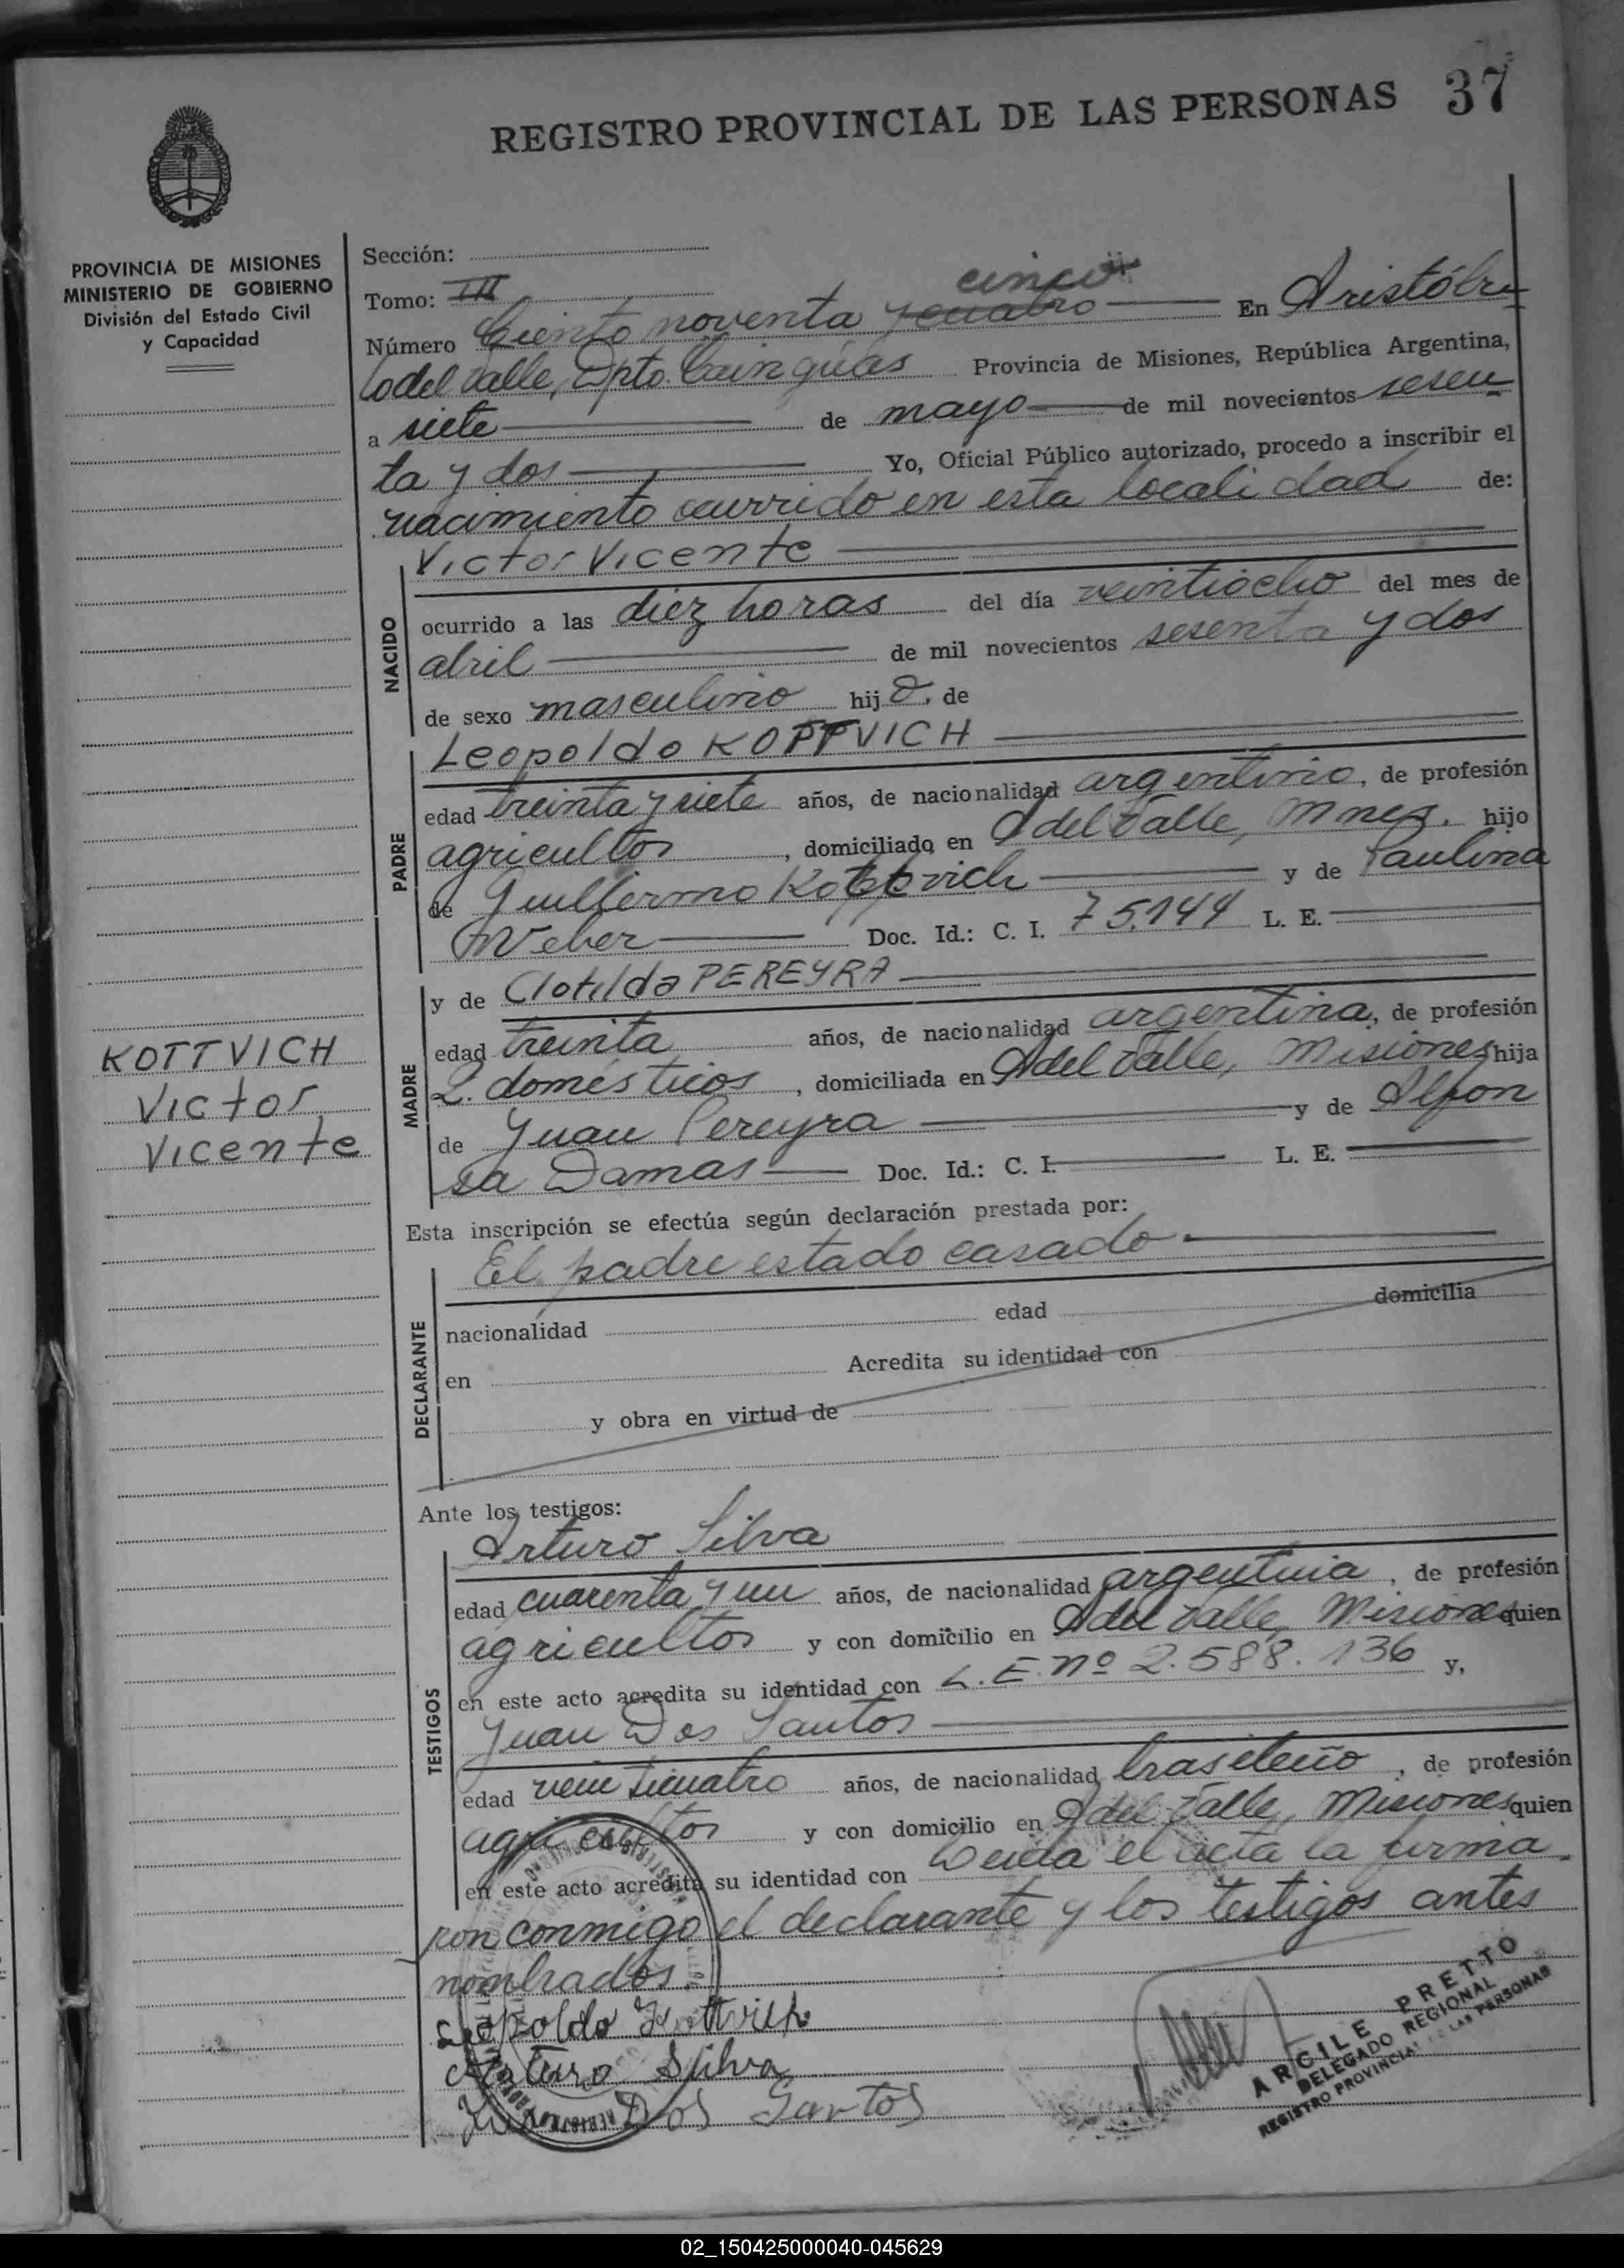 REGISTRO PROVINCIAL DE LAS PERSONAS 37
PROVINCIA DE MISIONES
MINISTERIO DE GOBIERNO
División del Estado Civil
y Capacidad
KOTTVICH
Victor
Vicente
Sección:
Tomo: III
cinco
Número Ciento noventa y cuatro En Aristóbu
lo del Valle, Dpto. Cainguás Provincia de Misiones, República Argentina,
a siete de mayo de mil novecientos sesen
ta y dos Yo, Oficial Público autorizado, procedo a inscribir el
nacimiento ocurrido en esta localidad de:
NACIDO
Victor Vicente
ocurrido a las diez horas del día veintiocho del mes de
abril de mil novecientos sesenta y dos
de sexo masculino hijo, de
PADRE
Leopoldo KOTTVICH
edad treinta y siete años, de nacionalidad argentino, de profesión
agricultor, domiciliado en A del Valle, Mnes. hijo
de Guillermo Kottvich y de Paulina
Weber Doc. Id.: C. I. 75.144 L. E.
MADRE
y de Clotilda PEREYRA
edad treinta años, de nacionalidad argentina, de profesión
Q. domésticos, domiciliada en A del Valle, Misiones hija
de Juan Pereyra y de Alfon
sa Damas Doc. Id.: C. I. L. E.
Esta inscripción se efectúa según declaración prestada por:
DECLARANTE
El padre estado casado
nacionalidad edad domicilia
en Acredita su identidad con
y obra en virtud de
Ante los testigos:
TESTIGOS
Arturo Silva
edad cuarenta y un años, de nacionalidad argentina, de profesión
agricultor y con domicilio en A del Valle, Misiones quien
en este acto acredita su identidad con L. E. nº 2.588.136 y,
Juan Dos Santos
edad veinticuatro años, de nacionalidad brasileño, de profesión
agricultor y con domicilio en A del Valle, Misiones quien
en este acto acredita su identidad con Leida el acta la firma
ron conmigo el declarante y los testigos antes
nombrados.
Leopoldo Kottvich
Arturo Silva
Juan Dos Santos
ARCILE PRETTO
DELEGADO REGIONAL
REGISTRO PROVINCIAL DE LAS PERSONAS
02_150425000040-045629